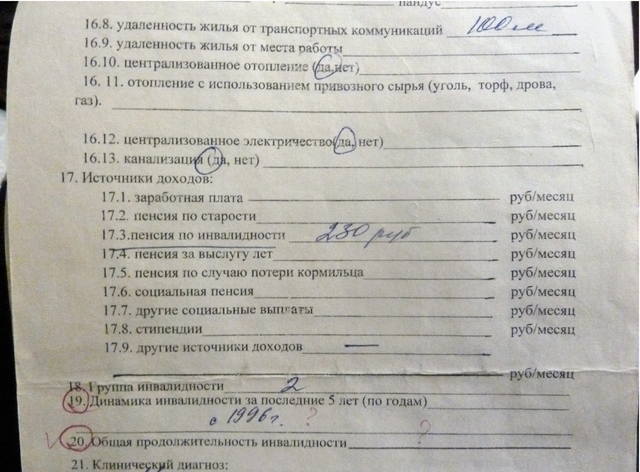 пандус
16.8. удаленность жилья от транспортных коммуникаций 100 м
16.9. удаленность жилья от места работы
16.10. централизованное отопление (да,нет)
16. 11. отопление с использованием привозного сырья (уголь, торф, дрова,
газ).
16.12. централизованное электричество(да, нет)
16.13. канализация (да, нет)
17. Источники доходов:
17.1. заработная плата руб/месяц
17.2. пенсия по старости руб/месяц
17.3.пенсия по инвалидности 230 руб руб/месяц
17.4. пенсия за выслугу лет руб/месяц
17.5. пенсия по случаю потери кормильца руб/месяц
17.6. социальная пенсия руб/месяц
17.7. другие социальные выплаты руб/месяц
17.8. стипендии руб/месяц
17.9. другие источники доходов —
руб/месяц
18. Группа инвалидности 2
19. Динамика инвалидности за последние 5 лет (по годам)
с 1996 г. ?
20. Общая продолжительность инвалидности ?
21. Клинический диагноз: